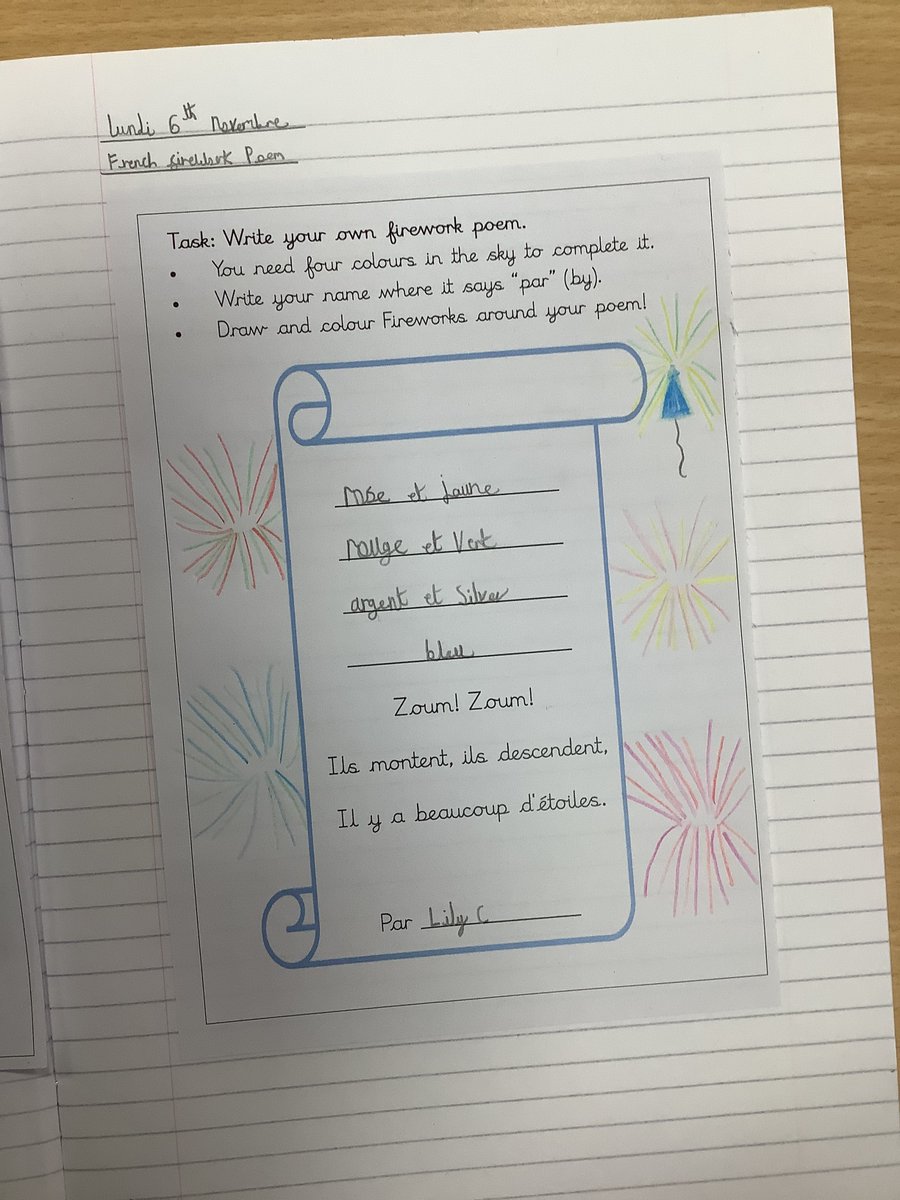 lundi 6th novembre
French firework Poem
Task: Write your own firework poem.
• You need four colours in the sky to complete it.
• Write your name where it says "par" (by).
• Draw and colour Fireworks around your poem!
et jaune
rouge et Vert
argent et Silver
bleu
Zoum! Zoum!
Ils montent, ils descendent,
Il y a beaucoup d'étoiles.
Par Lily C